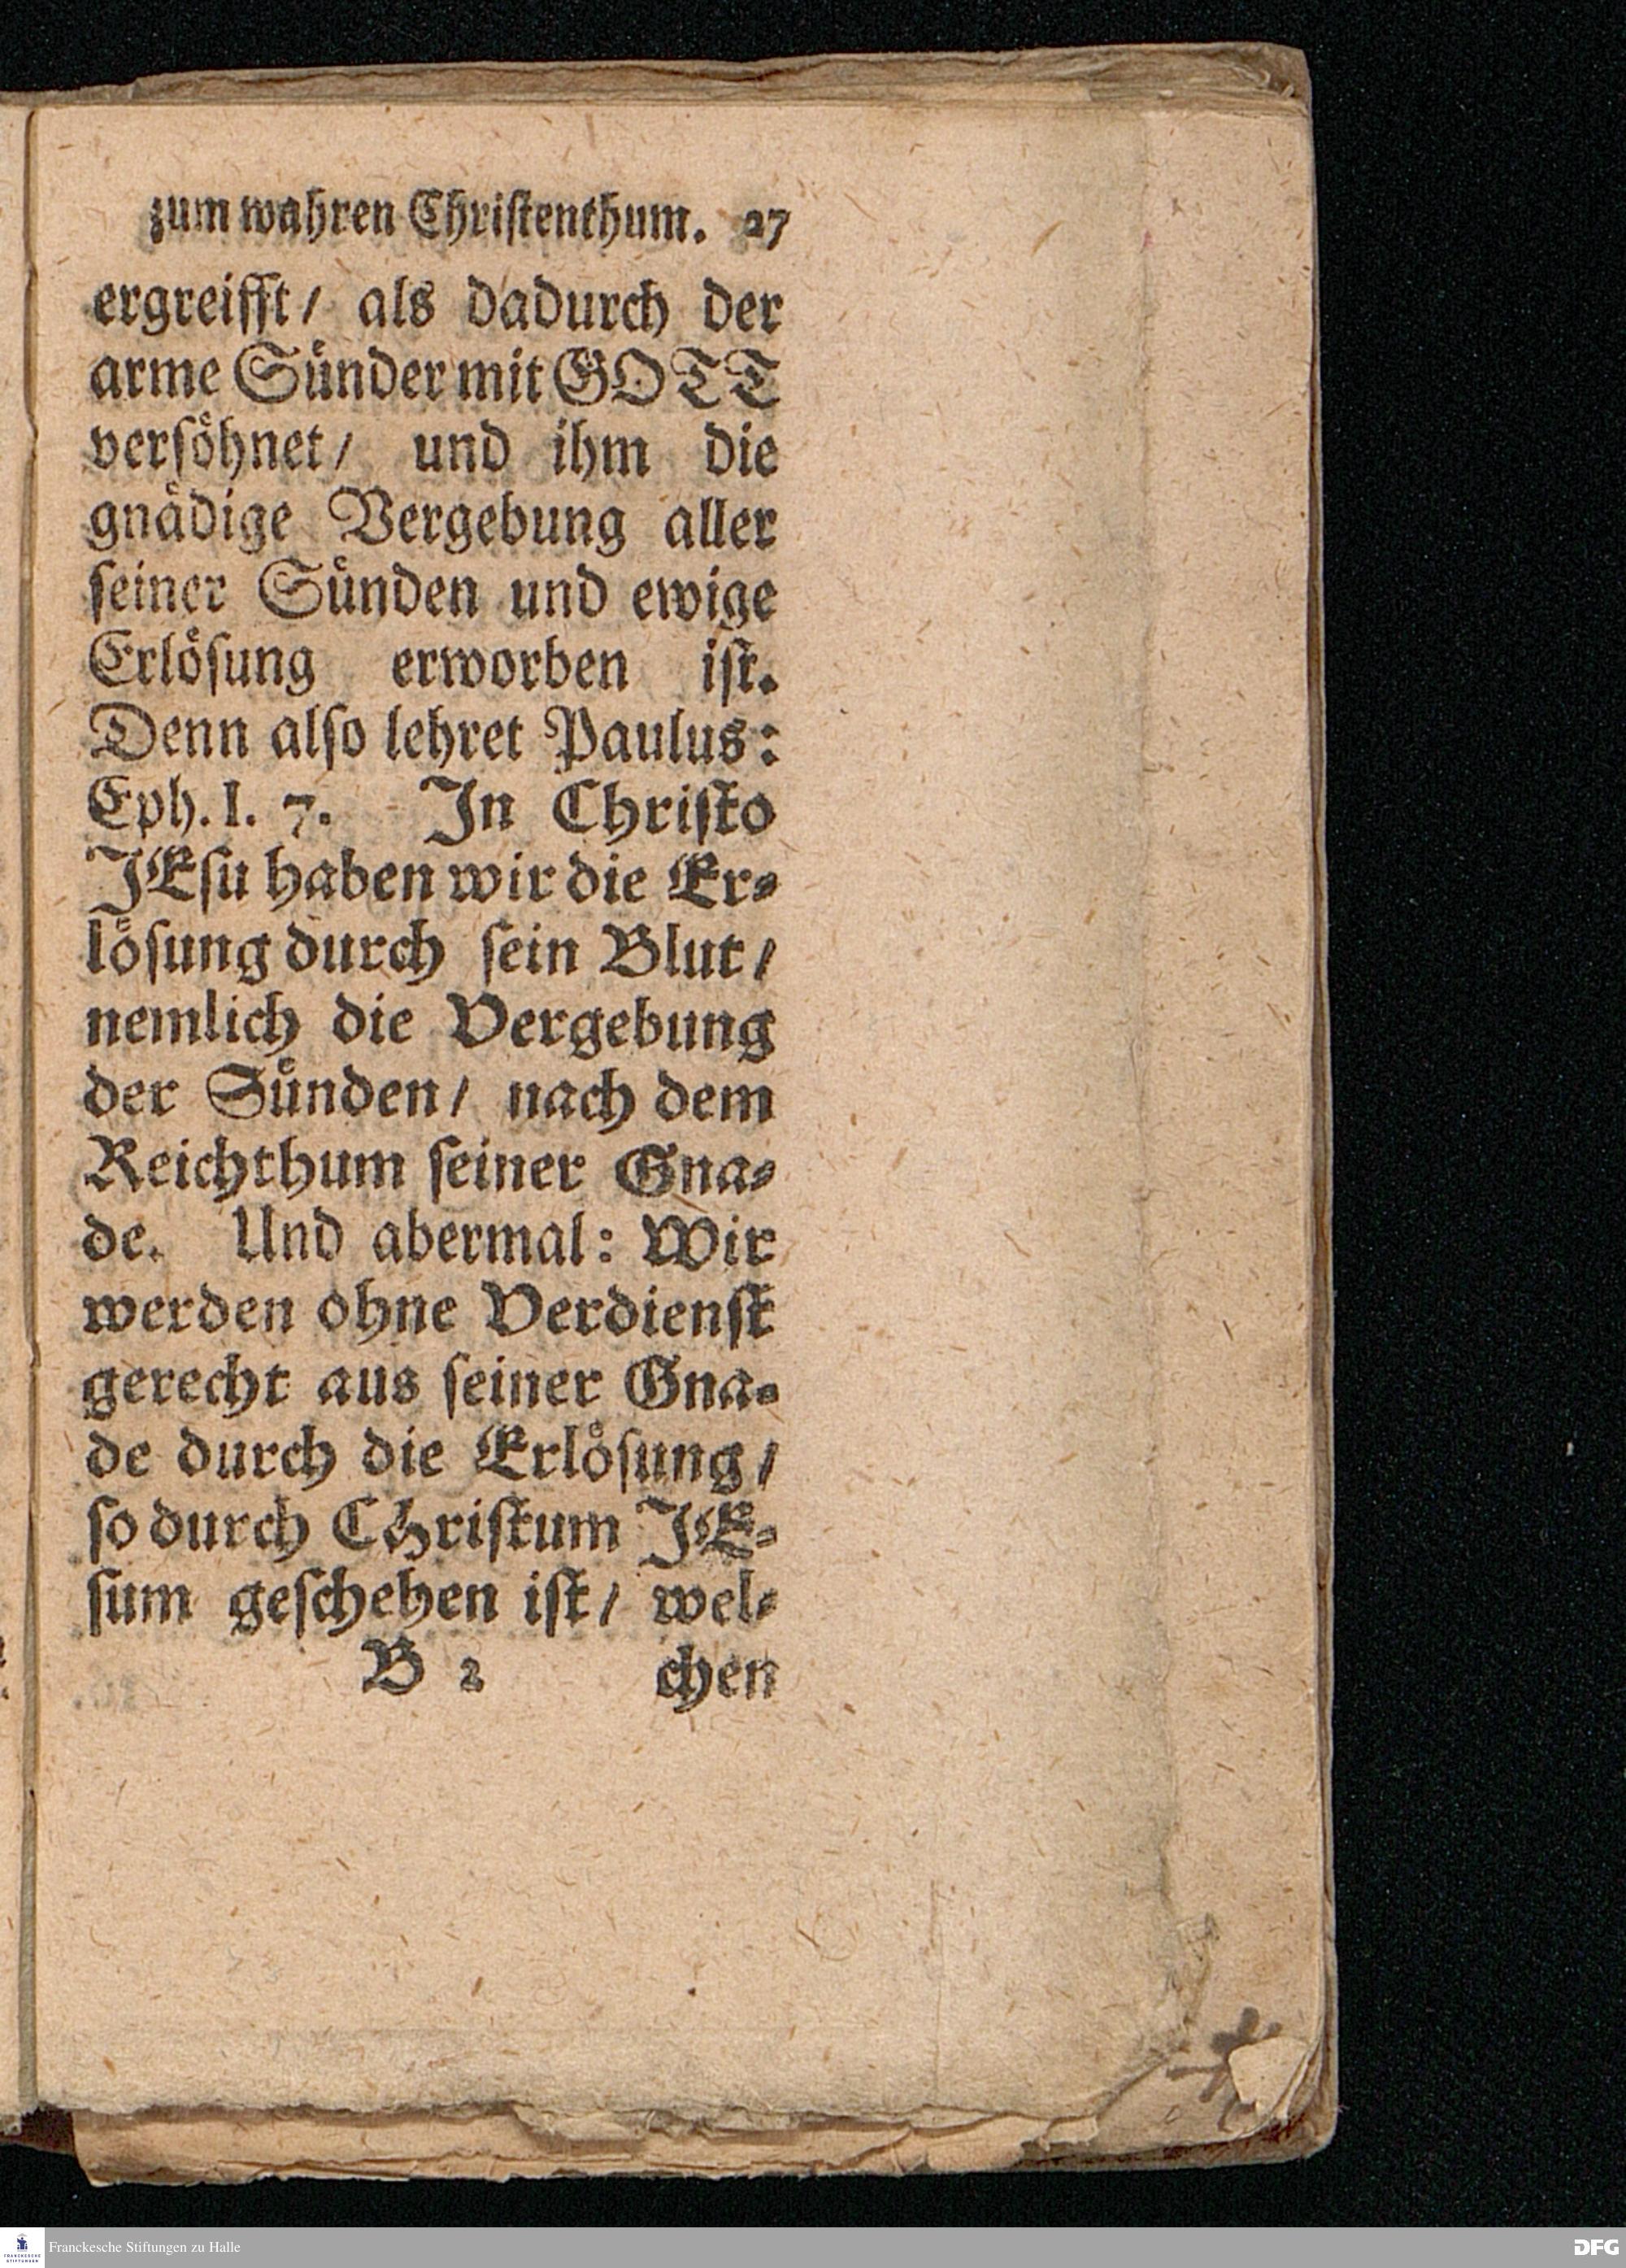 zum wahren Christenthum. 27
ergreifft / als dadurch der
arme Sünder mit GOTT
versöhnet / und ihm die
gnädige Vergebung aller
seiner Sünden und ewige
Erlösung erworben ist.
Denn also lehret Paulus:
Eph. I. 7. In Christo
JEsu haben wir die Er-
lösung durch sein Blut /
nemlich die Vergebung
der Sünden / nach dem
Reichthum seiner Gna-
de. Und abermal: Wir
werden ohne Verdienst
gerecht aus seiner Gna-
de durch die Erlösung /
so durch CHristum JE-
sum geschehen ist / wel-
B 2 chen
FRANCKESCHE STIFTUNGEN
Franckesche Stiftungen zu Halle
DFG